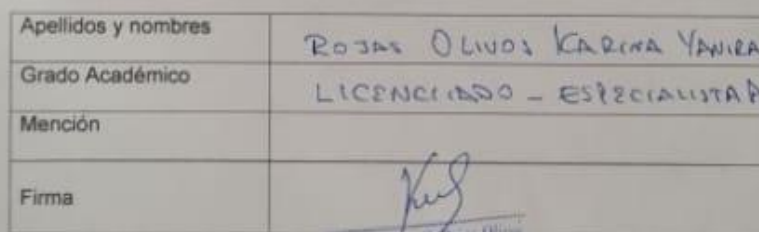 Apellidos y nombres ROJAS OLIVOS KARINA YANIRA
Grado Académico LICENCIADO - ESPECIALISTA
Mención
Firma